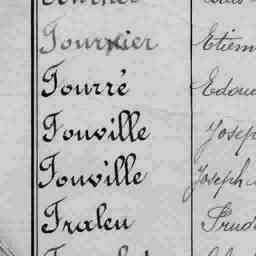 Fournier Etien
Fourré Edou
Fouville Joseph
Fouville Joseph
Fraleu Prud